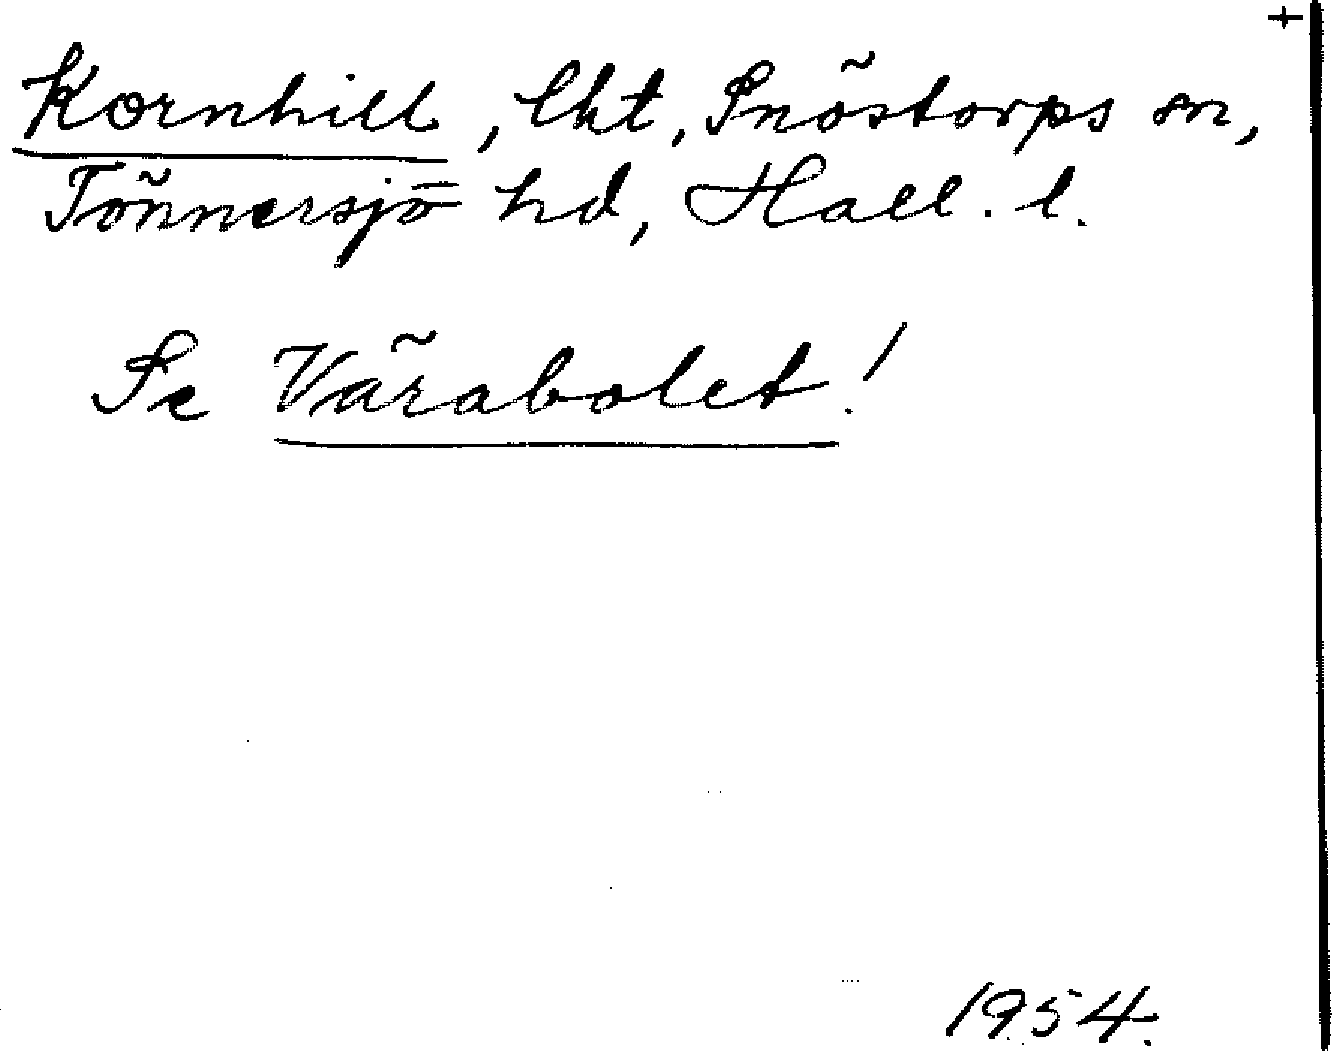 +
Kornhill, lht, Snöstorps sn,
Tönnersjö hd, Hall. l.
Se Värabolet!
1954.